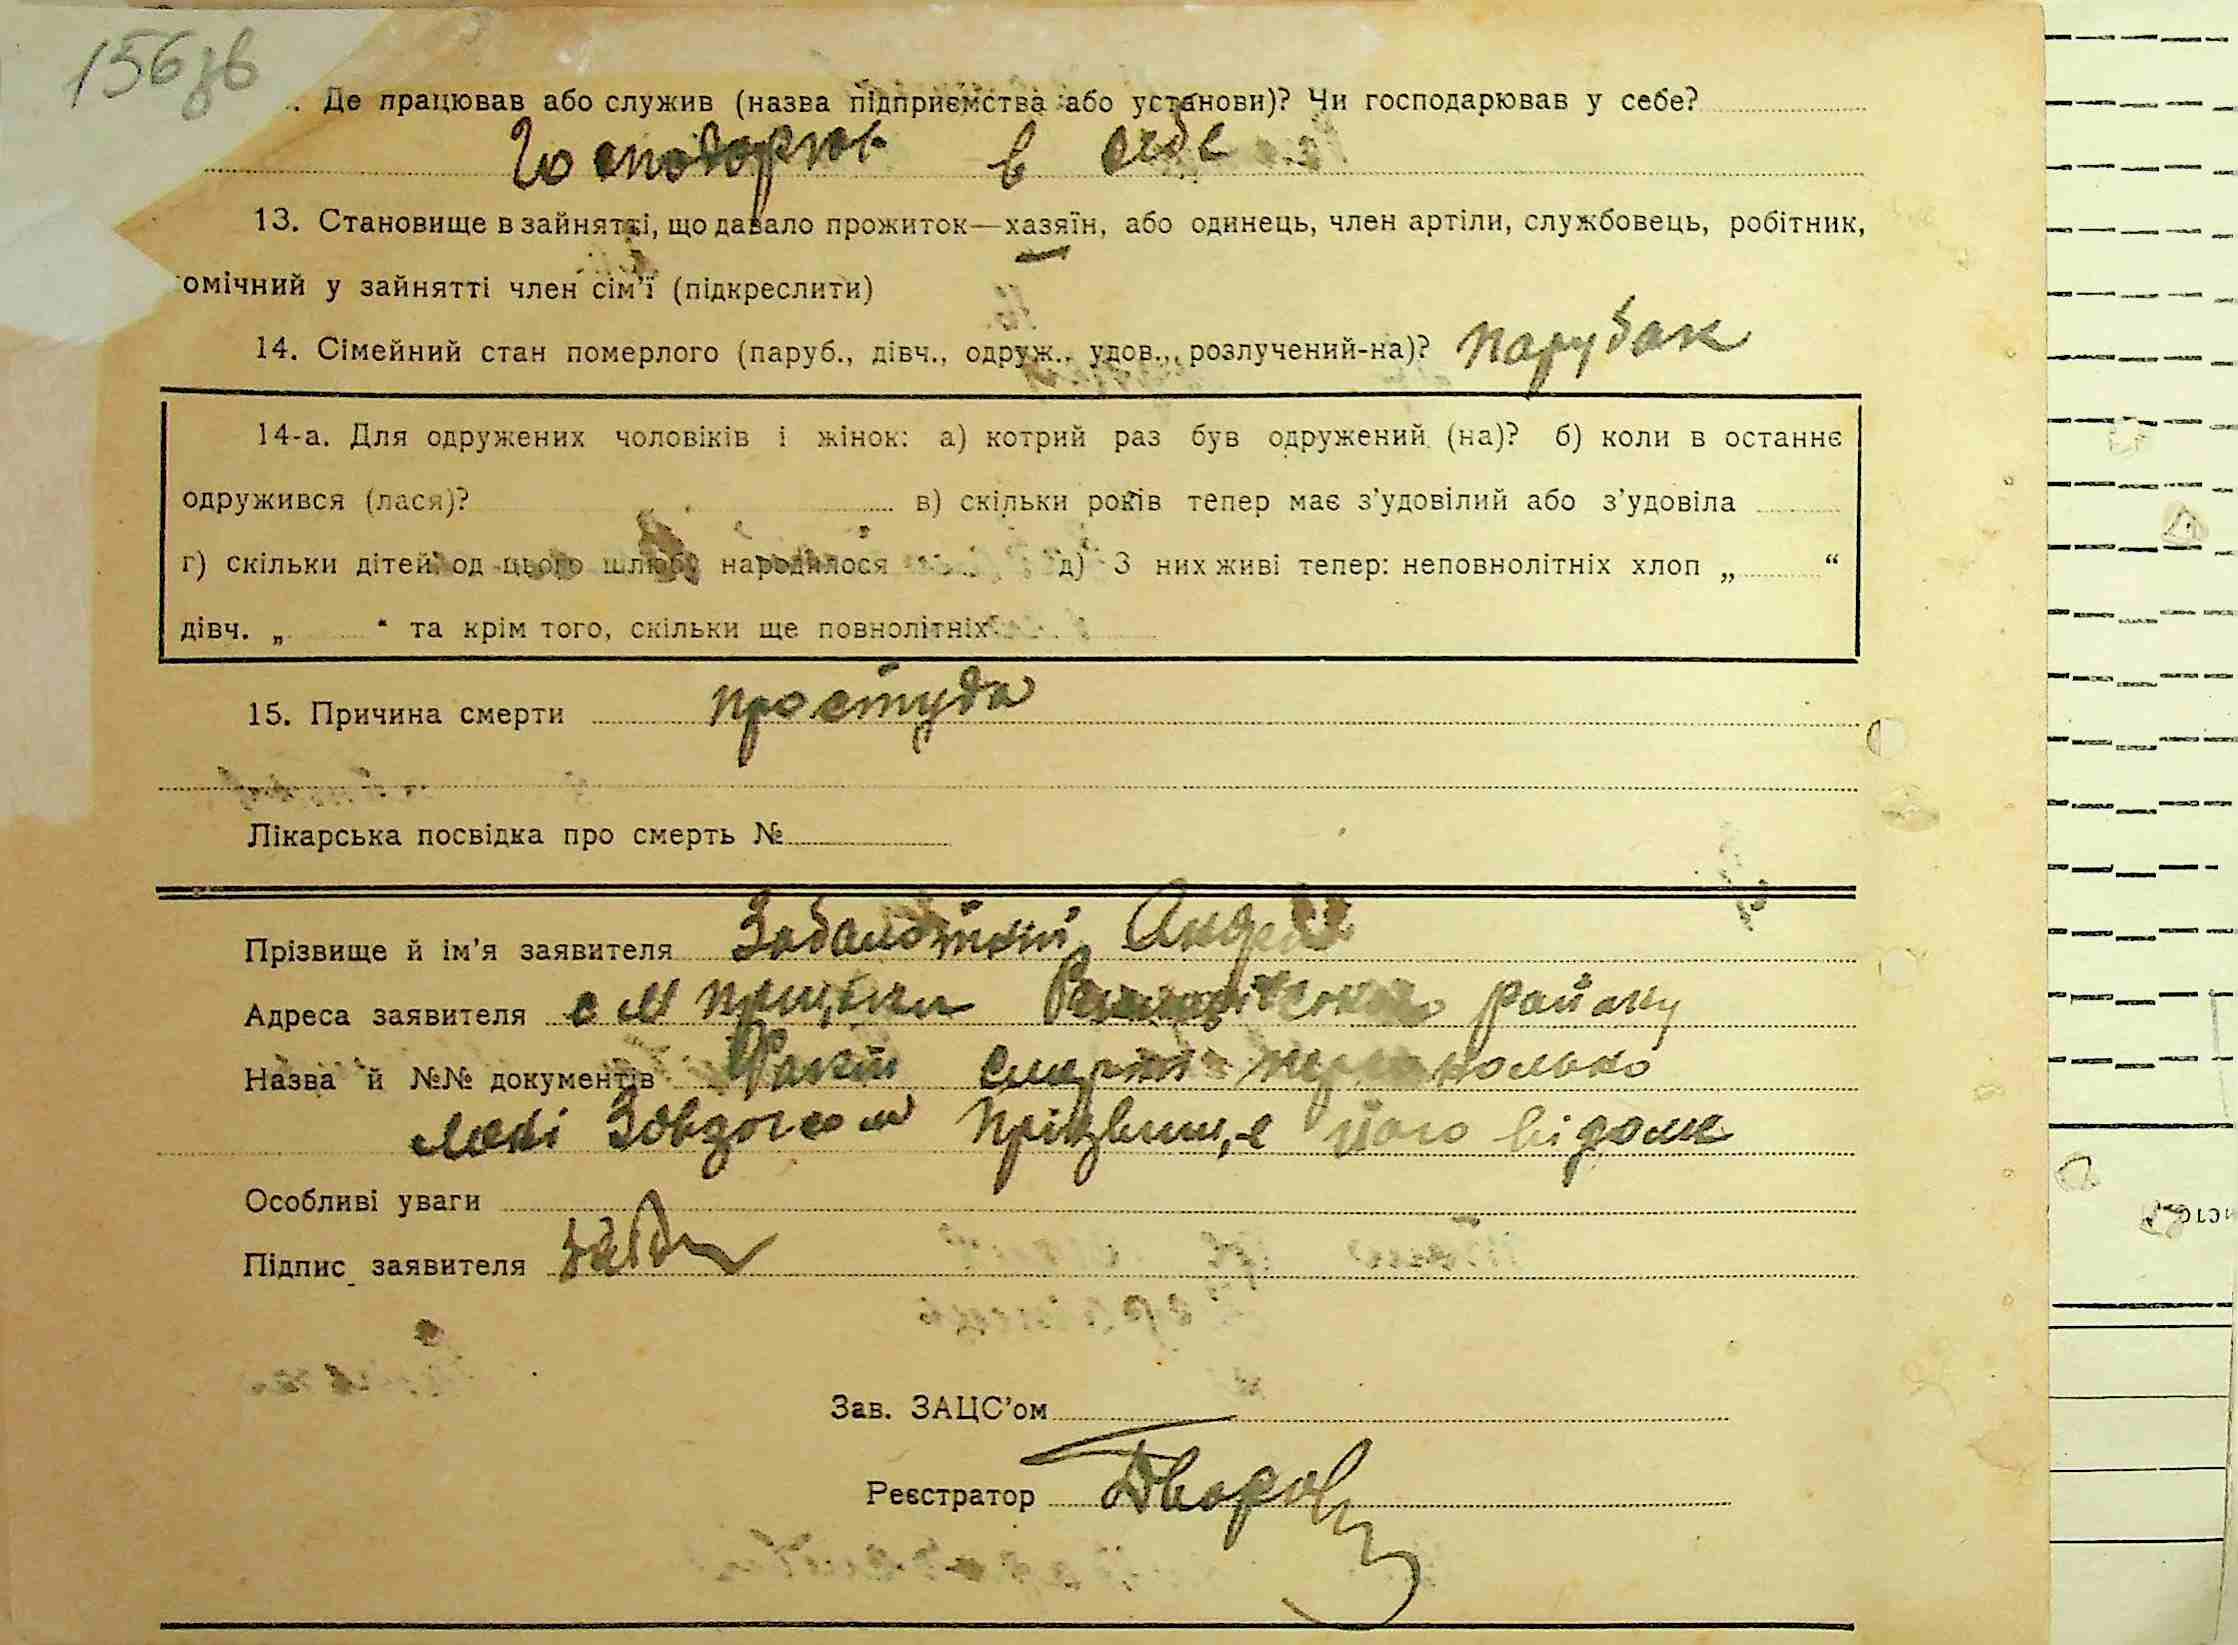 156зв
. Де працював або служив (назва підприємства або установи)? Чи господарював у себе?
Господорюв в себе
13. Становище в зайнятті, що давало прожиток—хазяїн, або одинець, член артіли, службовець, робітник,
омічний у зайнятті член сім'ї (підкреслити)
14. Сімейний стан померлого (паруб., дівч., одруж., удов., розлучений-на)? Парубак
14-а. Для одружених чоловіків і жінок: а) котрий раз був одружений (на)? б) коли в останнє
одружився (лася)? в) скільки років тепер має з'удовілий або з'удовіла
г) скільки дітей од цього шлюбу народилося д) З них живі тепер: неповнолітніх хлоп „ “
дівч. „ “ та крім того, скільки ще повнолітніх
15. Причина смерти простуда
Лікарська посвідка про смерть №
Прізвище й ім'я заявителя Андрей
Адреса заявителя с м району
Назва й №№ документів Факт смерти
мені Прізвище його відоме
Особливі уваги
Підпис заявителя
Зав. ЗАЦС'ом
Реєстратор